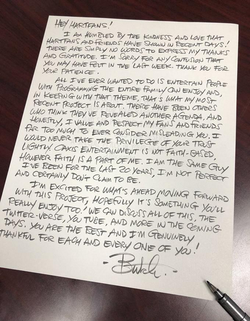 HEY HARTFANS!
I AM HUMBLED BY THE KINDNESS AND LOVE THAT
HARTFANS AND FRIENDS HAVE SHOWN IN RECENT DAYS!
THERE ARE SIMPLY NO WORDS TO EXPRESS MY THANKS
AND GRATITUDE. I'M SORRY FOR ANY CONFUSION THAT
YOU MAY HAVE FELT IN THE LAST WEEK. THANK YOU FOR
YOUR PATIENCE.
ALL I'VE EVER WANTED TO DO IS ENTERTAIN PEOPLE
WITH PROGRAMMING THE ENTIRE FAMILY CAN ENJOY AND,
IN KEEPING WITH THAT THEME, THAT'S WHAT MY MOST
RECENT PROJECT IS ABOUT. THERE HAVE BEEN OTHERS
WHO THINK THEY'VE REVEALED ANOTHER AGENDA, AND
HONESTLY, I VALUE AND RESPECT MY FANS AND FRIENDS
FAR TOO MUCH TO EVER CONSIDER MISLEADING YOU. I
WOULD NEVER TAKE THE PRIVILEGE OF YOUR TRUST
LIGHTLY. OAXIS ENTERTAINMENT IS NOT FAITH-BASED,
HOWEVER FAITH IS A PART OF ME. I AM THE SAME GUY
I'VE BEEN FOR THE LAST 20 YEARS, I'M NOT PERFECT
AND CERTAINLY DON'T CLAIM TO BE.
I'M EXCITED FOR WHAT'S AHEAD MOVING FORWARD
WITH THIS PROJECT. HOPEFULLY IT'S SOMETHING YOU'LL
REALLY ENJOY TOO! WE CAN DISCUSS ALL OF THIS, THE
TWITTER-VERSE, YOUTUBE, AND MORE IN THE COMING
DAYS. YOU ARE THE BEST AND I'M GENUINELY
THANKFUL FOR EACH AND EVERY ONE OF YOU!
Butch